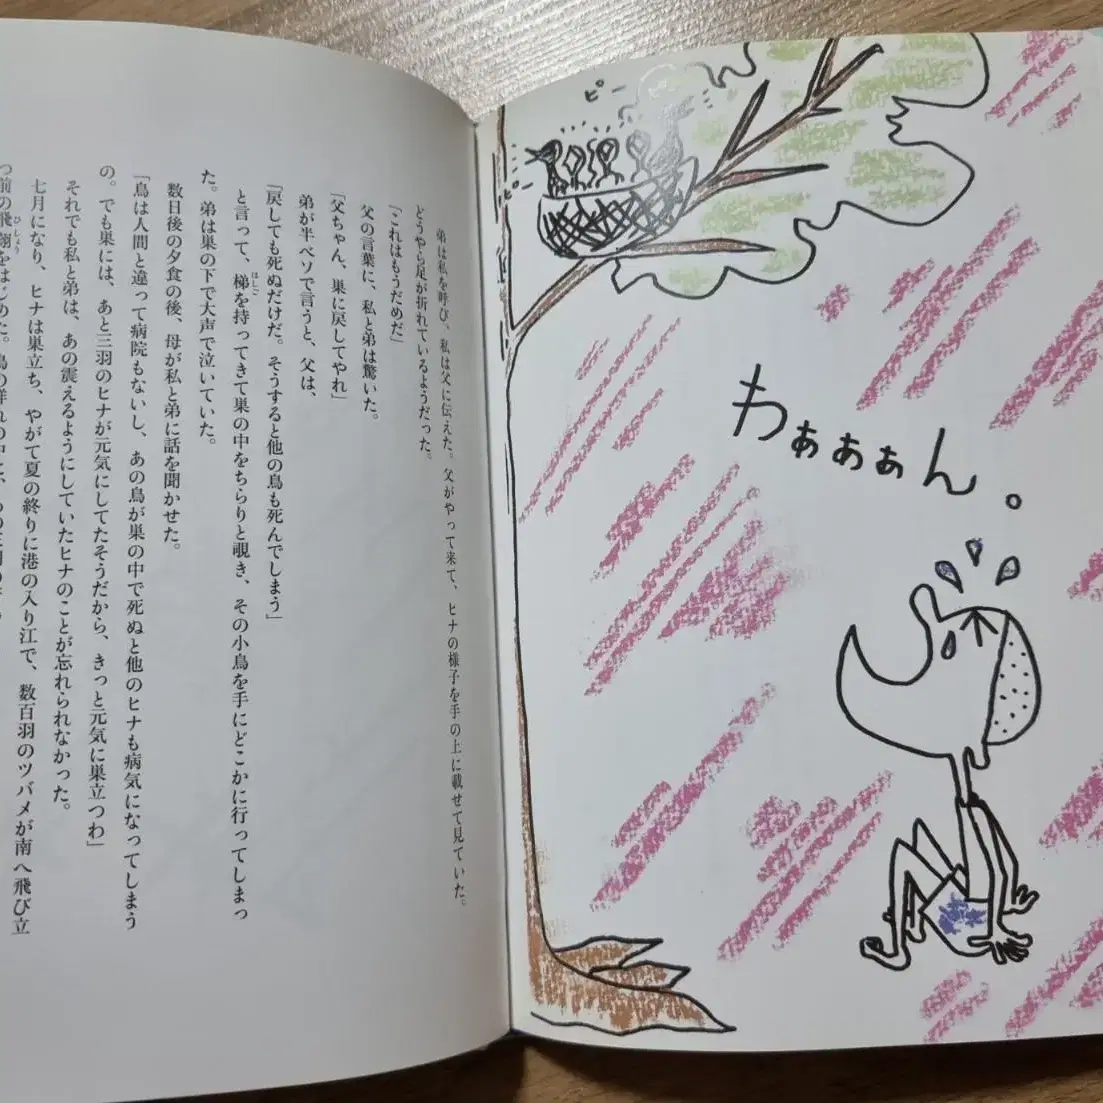 弟は私を呼び、私は父に伝えた。父がやって来て、ヒナの様子を手の上に載せて見ていた。
どうやら足が折れているようだった。
「これはもうだめだ」
父の言葉に、私と弟は驚いた。
「父ちゃん、巣に戻してやれ」
弟が半ベソで言うと、父は、
「戻しても死ぬだけだ。そうすると他の鳥も死んでしまう」
と言って、梯を持ってきて巣の中をちらりと覗き、その小鳥を手にどこかに行ってしまっ
はしご
た。弟は巣の下で大声で泣いていた。
数日後の夕食の後、母が私と弟に話を聞かせた。
「鳥は人間と違って病院もないし、あの鳥が巣の中で死ぬと他のヒナも病気になってしまう
の。でも巣には、あと三羽のヒナが元気にしてたそうだから、きっと元気に巣立つわ」
それでも私と弟は、あの震えるようにしていたヒナのことが忘れられなかった。
七月になり、ヒナは巣立ち、やがて夏の終りに港の入り江で、数百羽のツバメが南へ飛び立
つ前の飛翔をはじめた。鳥の群れの中に、
ひしょう
ピー
ピ
わぁぁぁん。